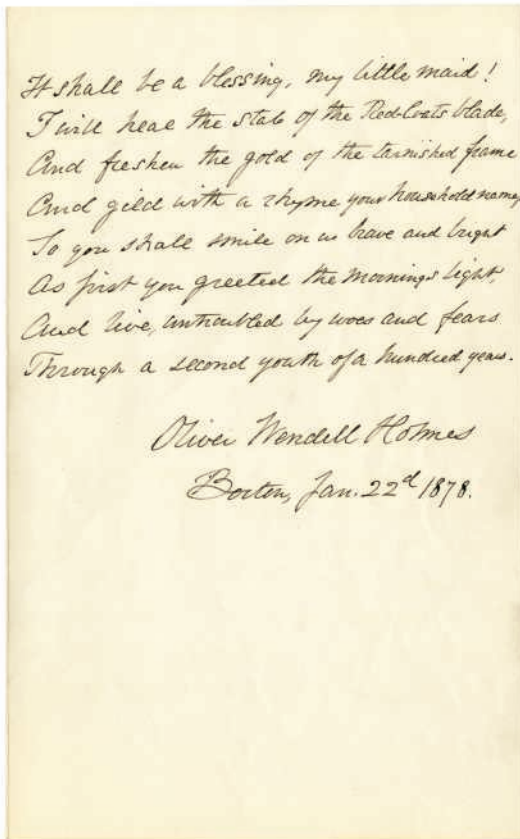 It shall be a blessing, my little maid!
I will heal the stab of the Red-Coats blade,
And freshen the gold of the tarnished frame
And gild with a rhyme your household name,
So you shall smile on us brave and bright
As first you greeted the morning's light,
And live, untroubled by woes and fears
Through a second youth of a hundred years.
Oliver Wendell Holmes
Boston, Jan. 22d 1878.